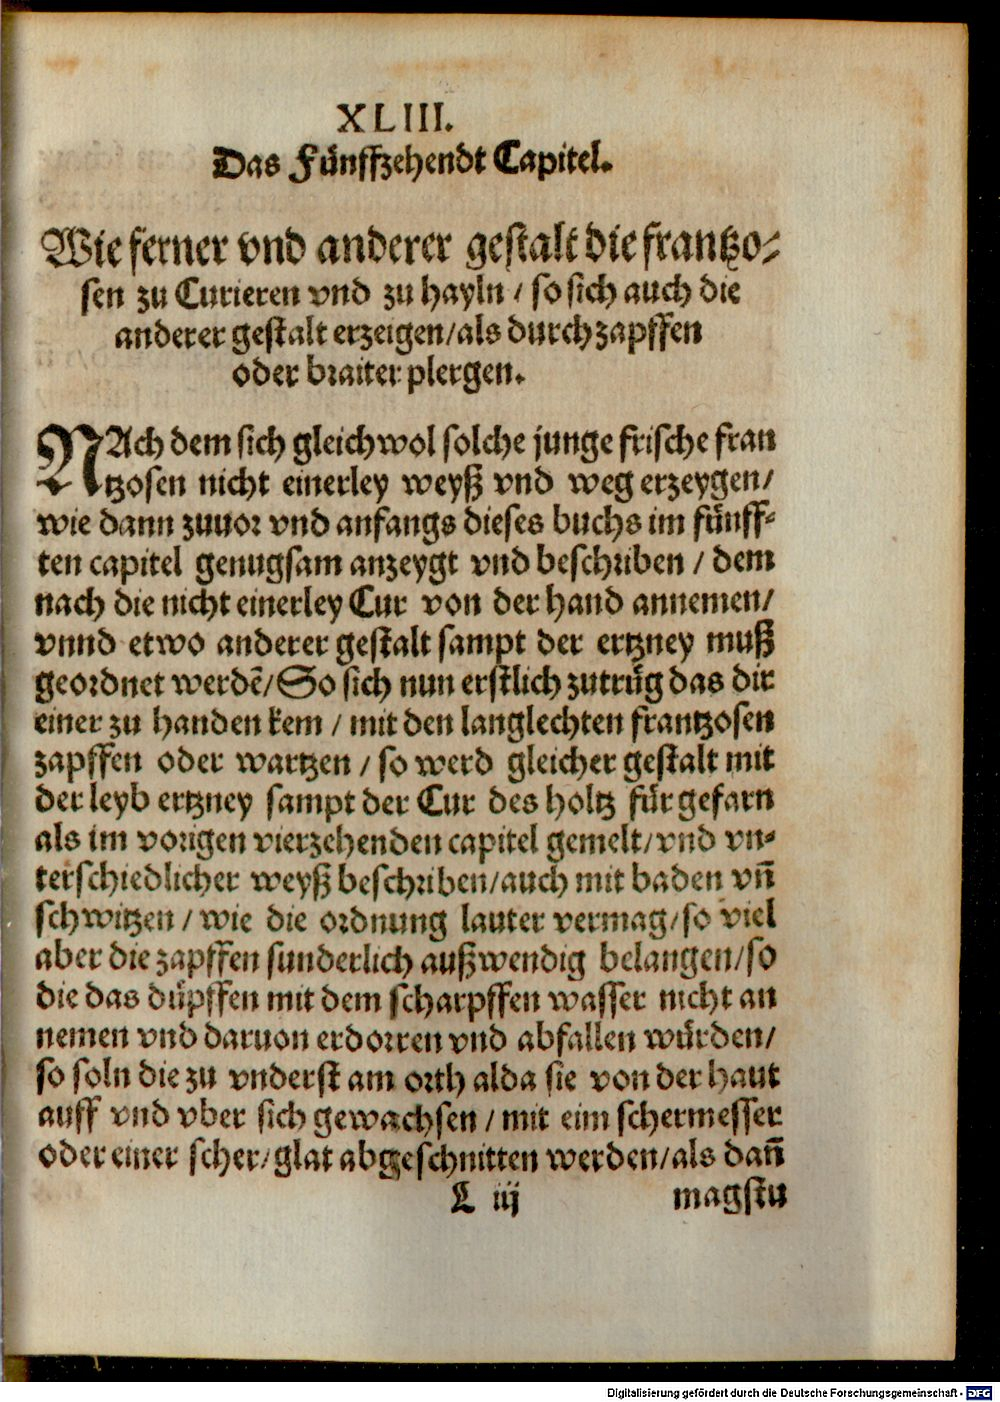 XLIII.
Das Fünffzehendt Capitel.
Wie ferner vnd anderer gestalt die frantzo⸗
sen zu Curieren vnd zu hayln / so sich auch die
anderer gestalt erzeigen/als durch zapffen
oder braiter plergen.
NAch dem sich gleichwol solche junge frische fran
tzosen nicht einerley weyß vnd weg erzeygen/
wie dann zuuor vnd anfangs dieses buchs im fünff⸗
ten capitel genugsam anzeygt vnd beschriben / dem
nach die nicht einerley Cur von der hand annemen/
vnnd etwo anderer gestalt sampt der ertzney muß
geordnet werdē/So sich nun erstlich zutrüg das dir
einer zu handen kem / mit den langlechten frantzosen
zapffen oder wartzen / so werd gleicher gestalt mit
der leyb ertzney sampt der Cur des holtz für gefarn
als im vorigen vierzehenden capitel gemelt/vnd vn⸗
terschiedlicher weyß beschriben/auch mit baden vn̄
schwitzen / wie die ordnung lauter vermag/so viel
aber die zapffen sunderlich außwendig belangen/so
die das düpffen mit dem scharpffen wasser nicht an
nemen vnd daruon erdorren vnd abfallen würden/
so soln die zu vnderst am orth alda sie von der haut
auff vnd vber sich gewachsen / mit eim schermesser
oder einer scher/glat abgeschnitten werden/als dan̄
L iij magstu
Digitalisierung gefördert durch die Deutsche Forschungsgemeinschaft - DFG